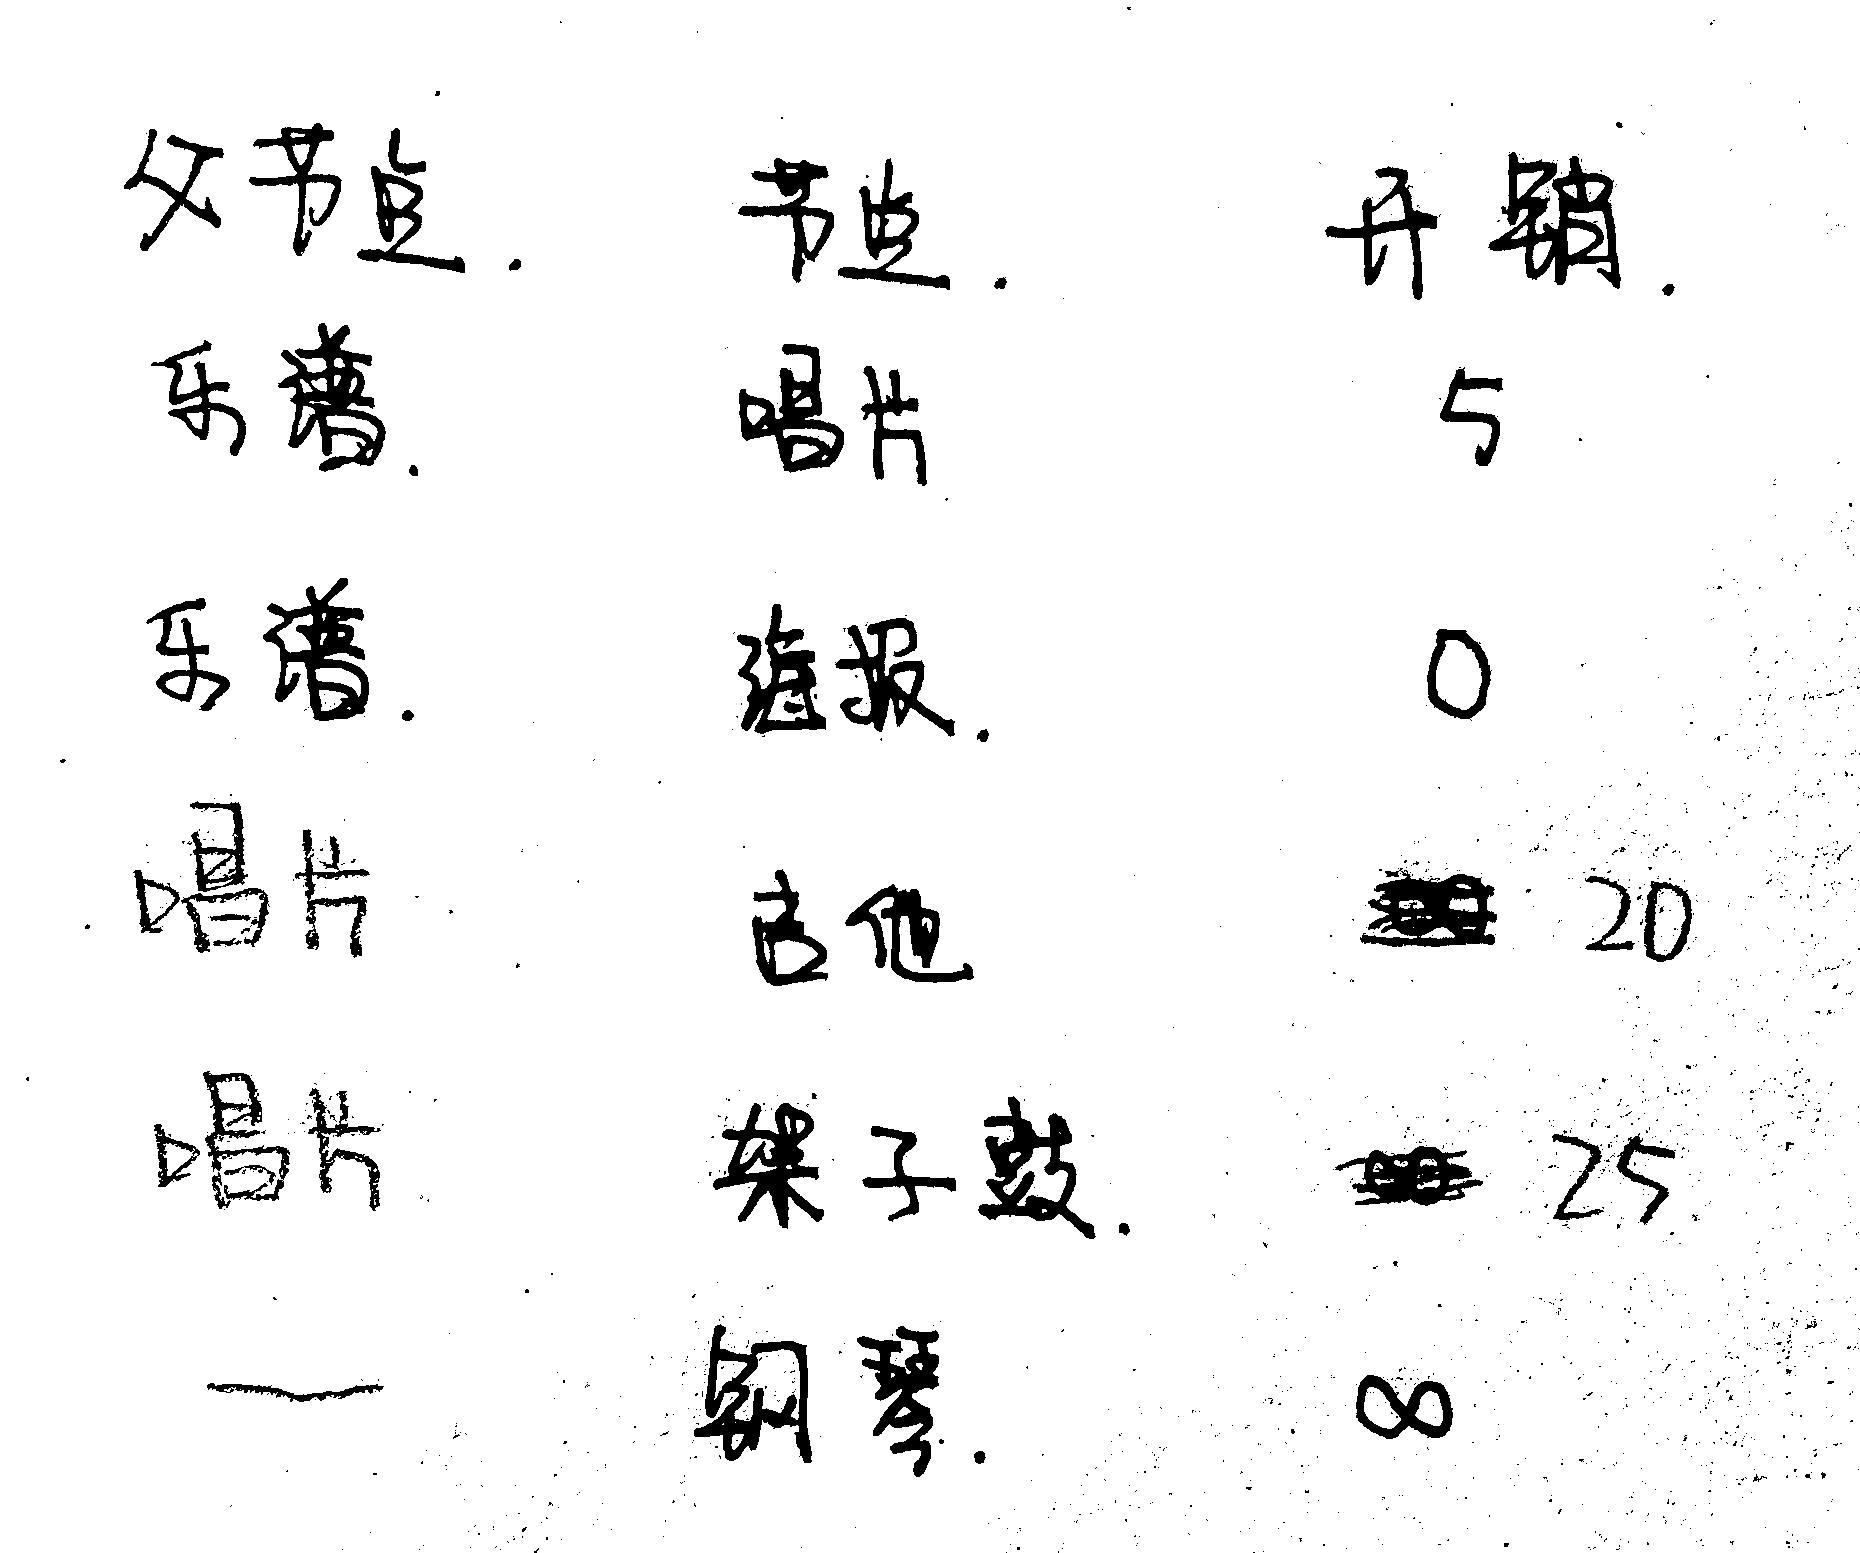 父节点. 节点. 开销.
乐谱. 唱片 5
乐谱. 海报. 0
唱片 吉他 20
唱片 架子鼓. 25
— 钢琴. ∞